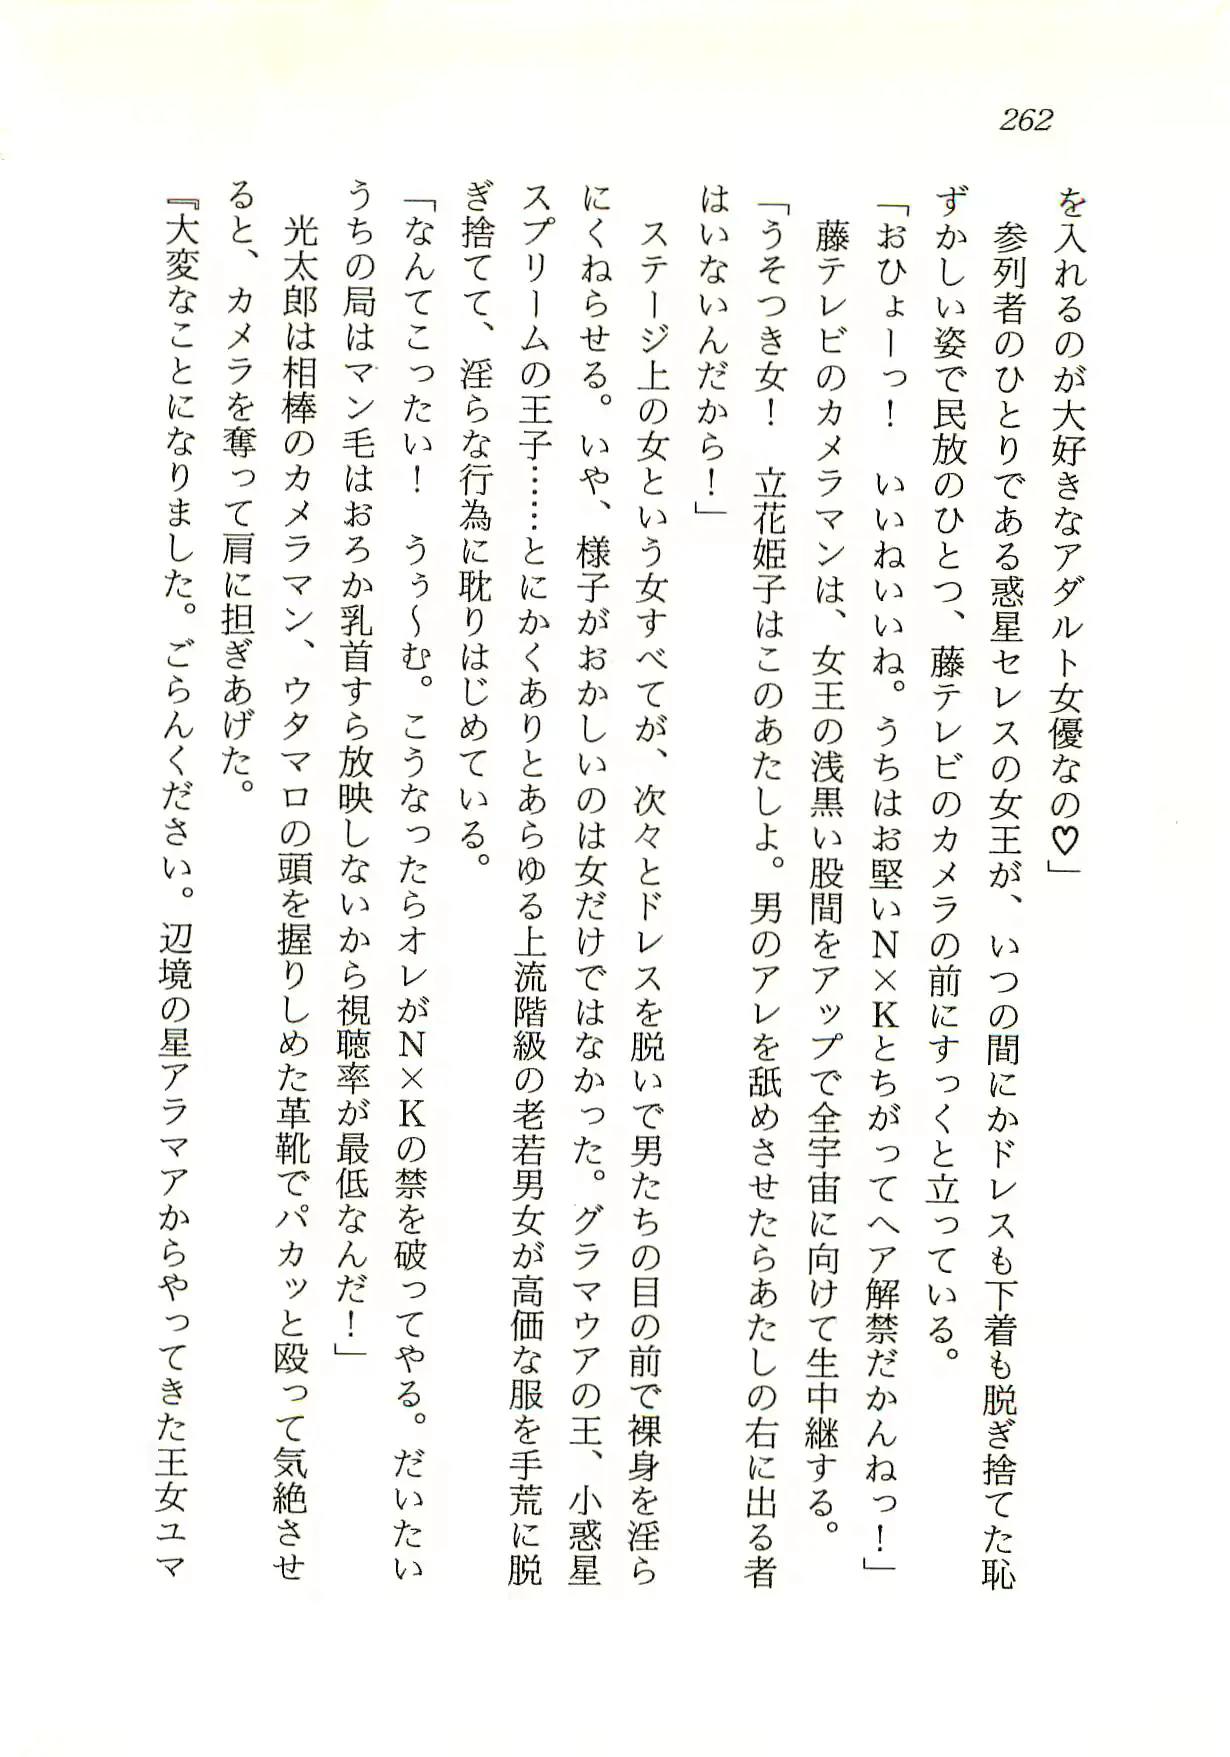 262
を入れるのが大好きなアダルト女優なの♡」
参列者のひとりである惑星セレスの女王が、いつの間にかドレスも下着も脱ぎ捨てた恥
ずかしい姿で民放のひとつ、藤テレビのカメラの前にすっくと立っている。
「おひょーっ！　いいねいいね。うちはお堅いN×Kとちがってヘア解禁だかんねっ！」
藤テレビのカメラマンは、女王の浅黒い股間をアップで全宇宙に向けて生中継する。
「うそつき女！　立花姫子はこのあたしよ。男のアレを舐めさせたらあたしの右に出る者
はいないんだから！」
ステージ上の女という女すべてが、次々とドレスを脱いで男たちの目の前で裸身を淫ら
にくねらせる。いや、様子がおかしいのは女だけではなかった。グラマウアの王、小惑星
スプリームの王子……とにかくありとあらゆる上流階級の老若男女が高価な服を手荒に脱
ぎ捨てて、淫らな行為に耽りはじめている。
「なんてこったい！　うぅ～む。こうなったらオレがN×Kの禁を破ってやる。だいたい
うちの局はマン毛はおろか乳首すら放映しないから視聴率が最低なんだ！」
光太郎は相棒のカメラマン、ウタマロの頭を握りしめた革靴でパカッと殴って気絶させ
ると、カメラを奪って肩に担ぎあげた。
『大変なことになりました。ごらんください。辺境の星アラマアからやってきた王女ユマ